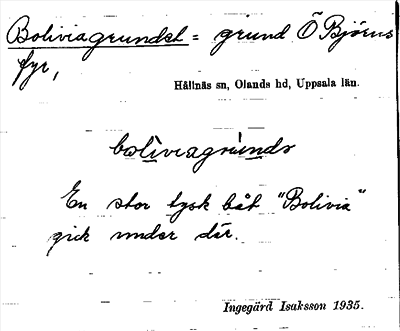 Boliviagrundet = grund Ö Björns
fyr,
Hållnäs sn, Olands hd, Uppsala län.
bolìviagrúnds
En stor tysk båt "Bolivia"
gick under där.
Ingegärd Isaksson 1935.